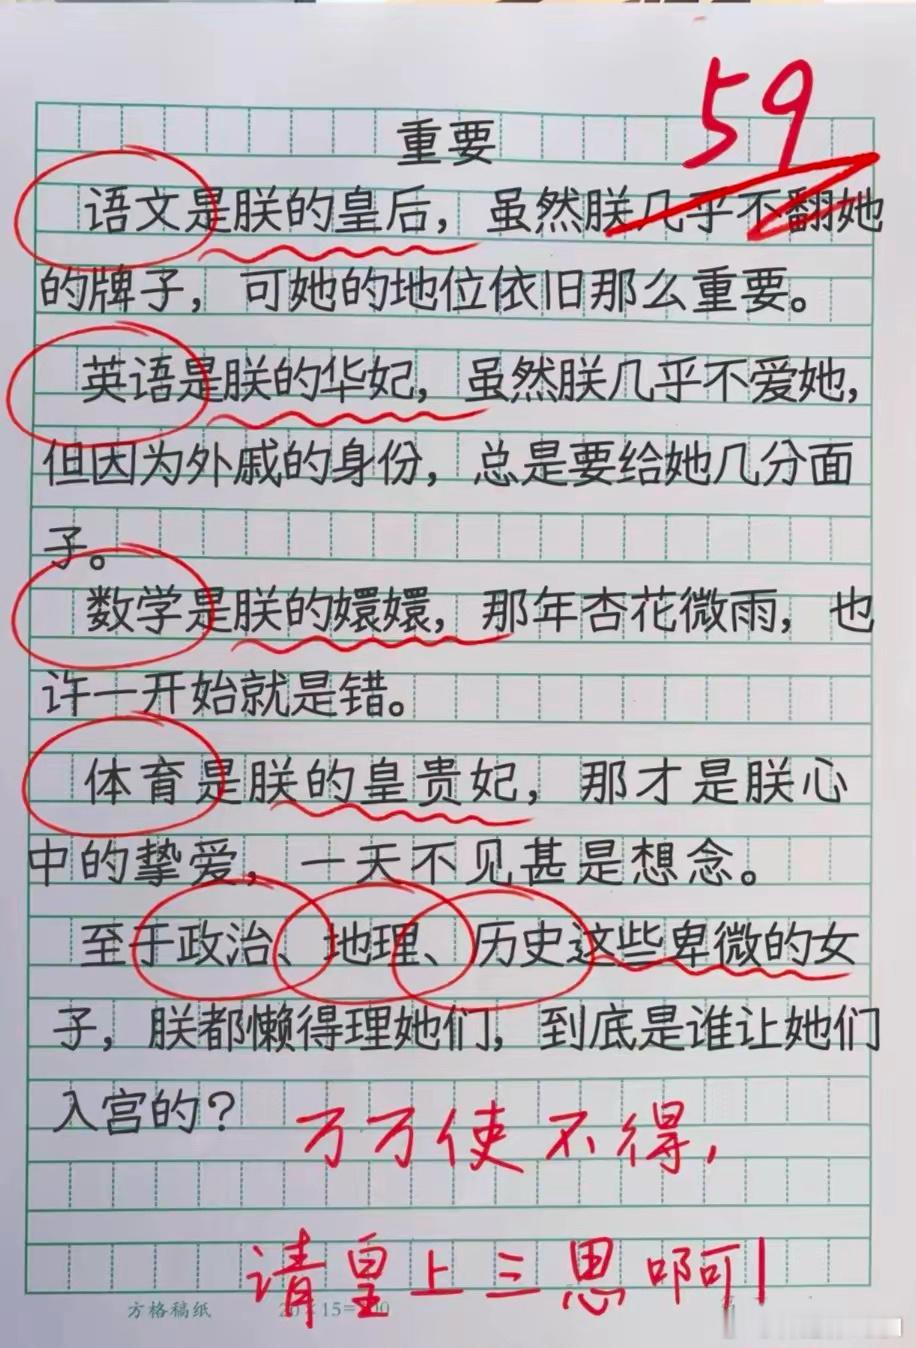 59
重要
语文是朕的皇后，虽然朕几乎不翻她
的牌子，可她的地位依旧那么重要。
英语是朕的华妃，虽然朕几乎不爱她，
但因为外戚的身份，总是要给她几分面
子。
数学是朕的嬛嬛，那年杏花微雨，也
许一开始就是错。
体育是朕的皇贵妃，那才是朕心
中的挚爱，一天不见甚是想念。
至于政治、地理、历史这些卑微的女
子，朕都懒得理她们，到底是谁让她们
入宫的？
万万使不得，
请皇上三思啊！
方格稿纸 20×15=300